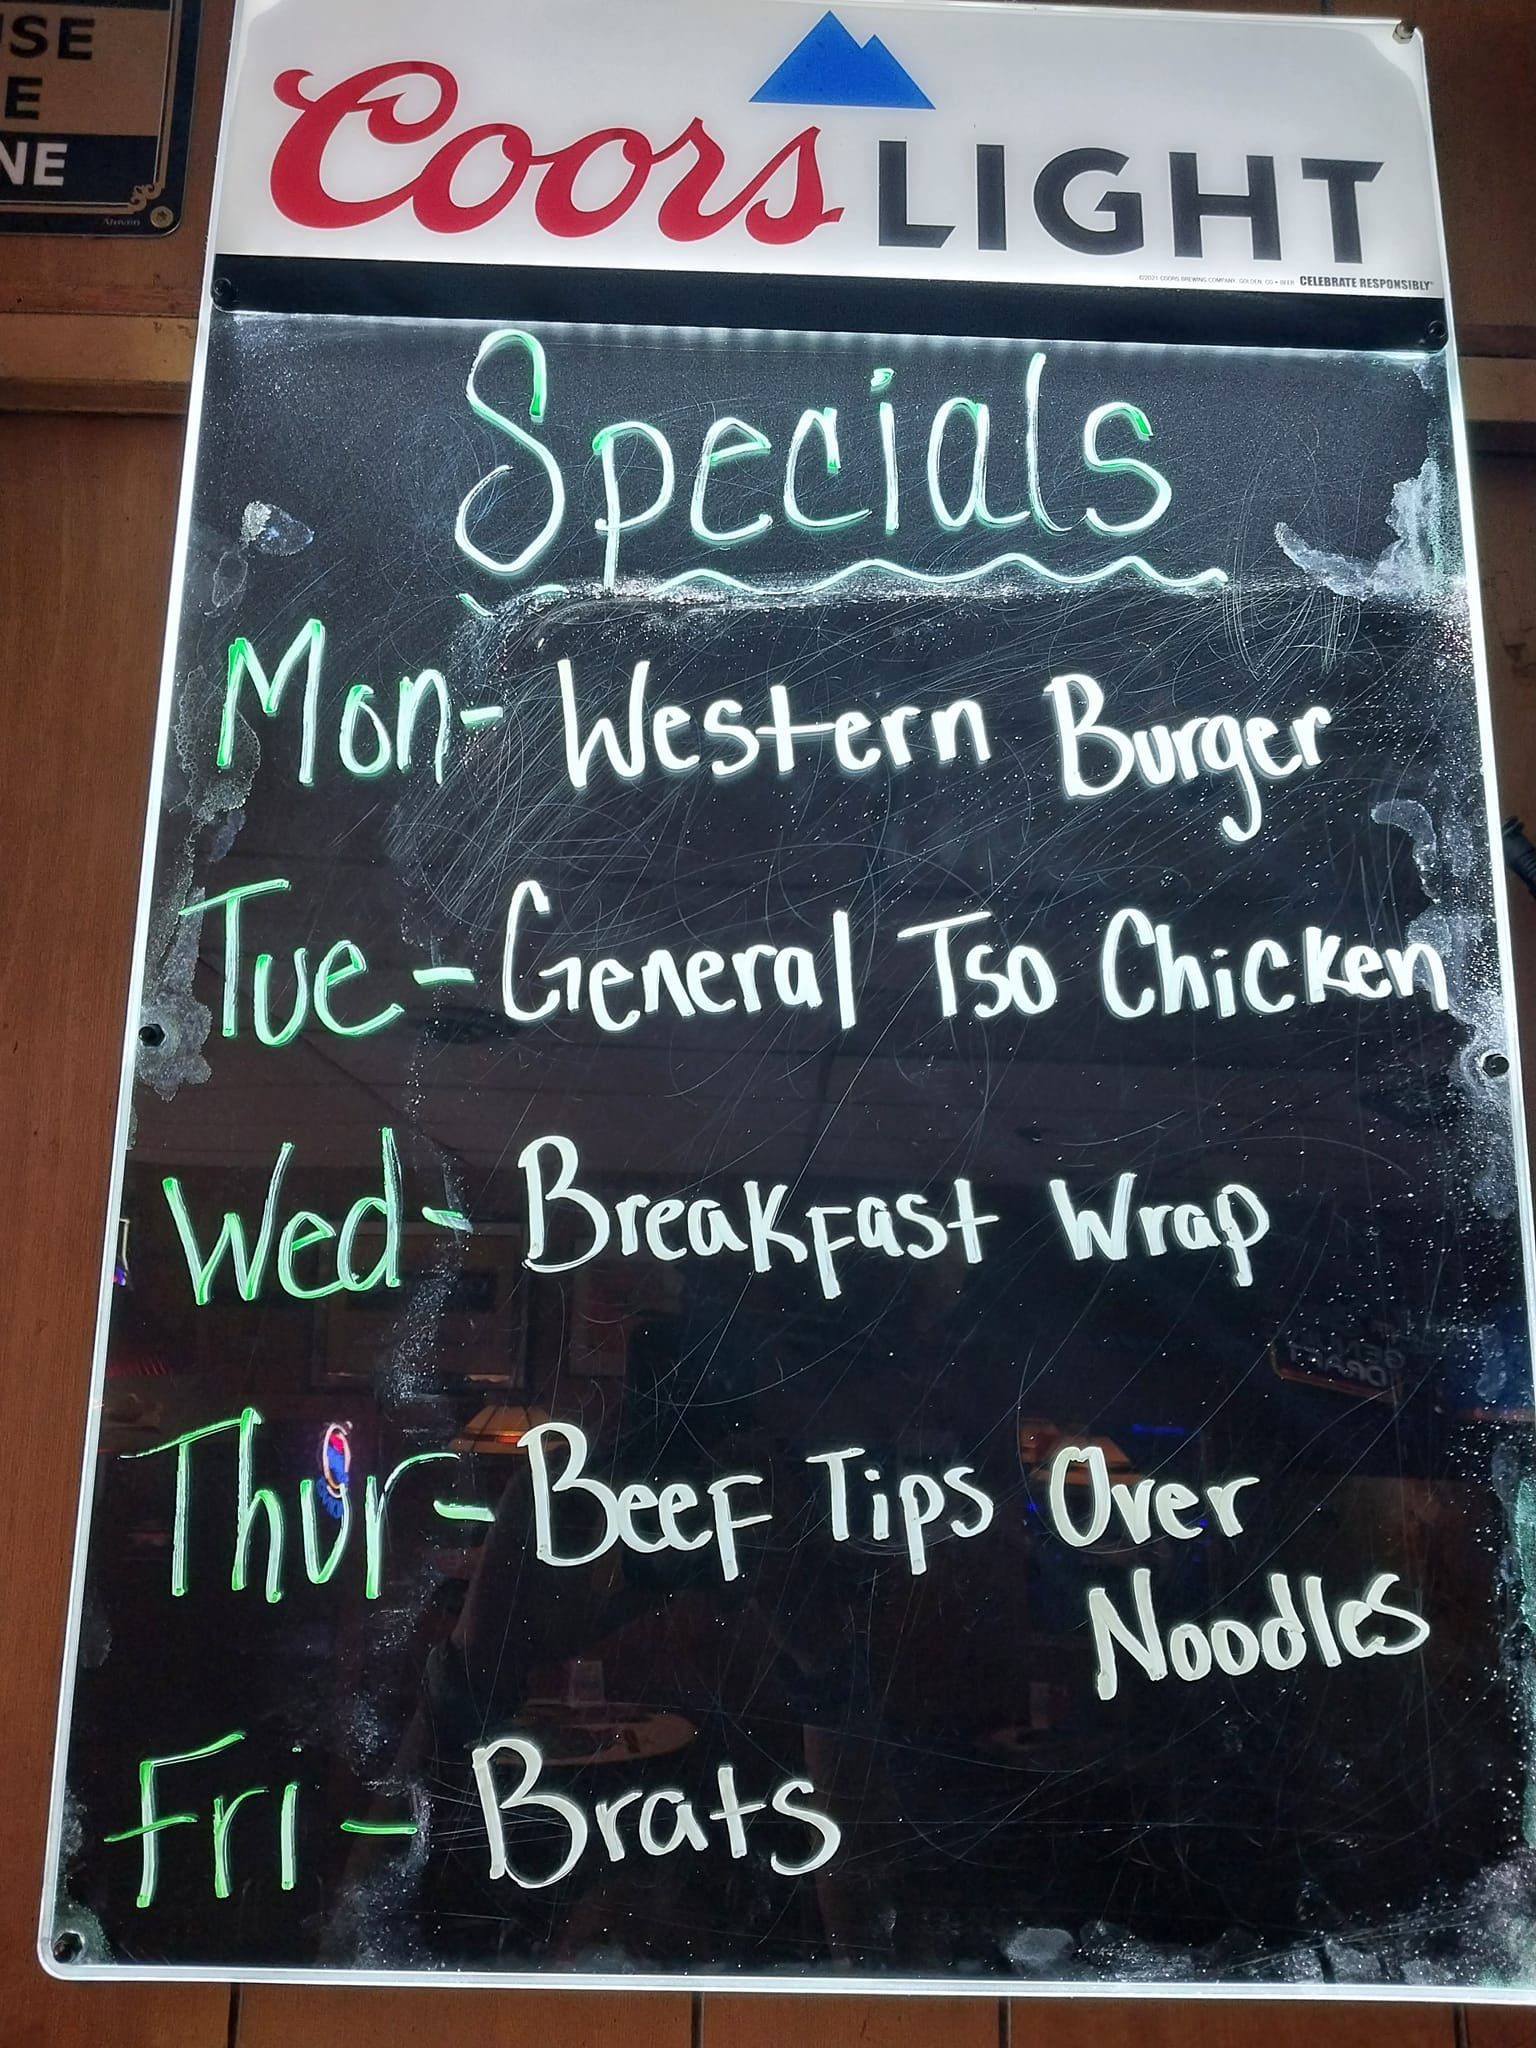 USE
E
NE
Coors LIGHT
©2021 COORS BREWING COMPANY, GOLDEN, CO • BEER CELEBRATE RESPONSIBLY®
Specials
Mon- Western Burger
Tue - General Tso Chicken
Wed- Breakfast Wrap
Thur- Beef Tips Over
Noodles
Fri - Brats